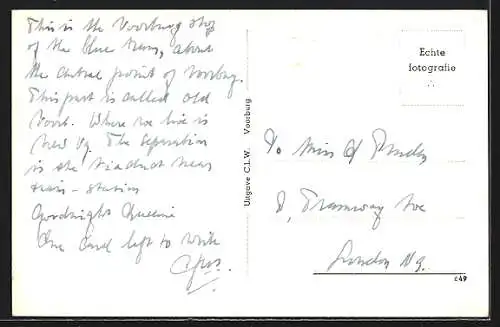 This is the Voorburg stop
of the blue tram, about
the central point of Voorburg.
This part is called old
Voorb. Where we live is
New Vg. The separation
is the viaduct near
train - station
Goodnight Queenie
One card left to write
Echte
fotografie
Uitgave C.L.W. Voorburg
To Miss
Tramway Ave
London N9.
c49